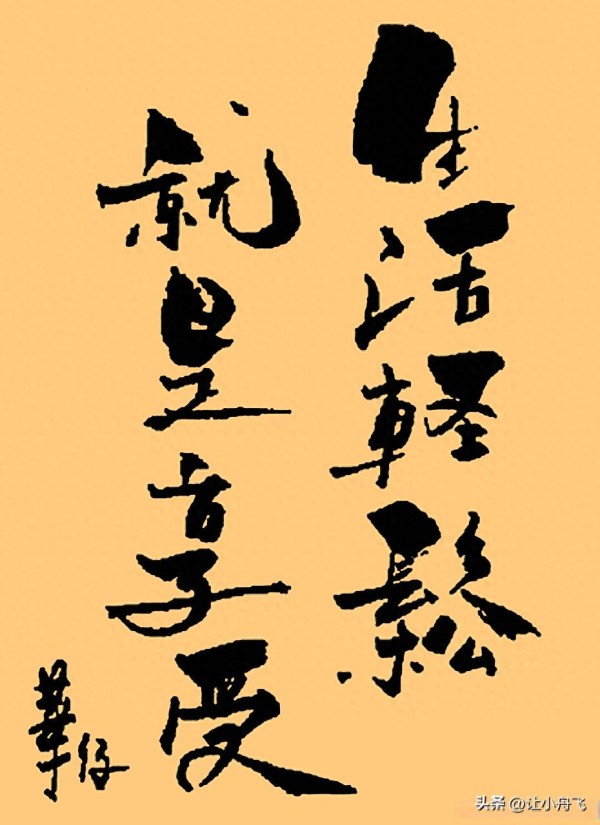 生活輕鬆
就是享受
華仔
头条 @让小舟飞